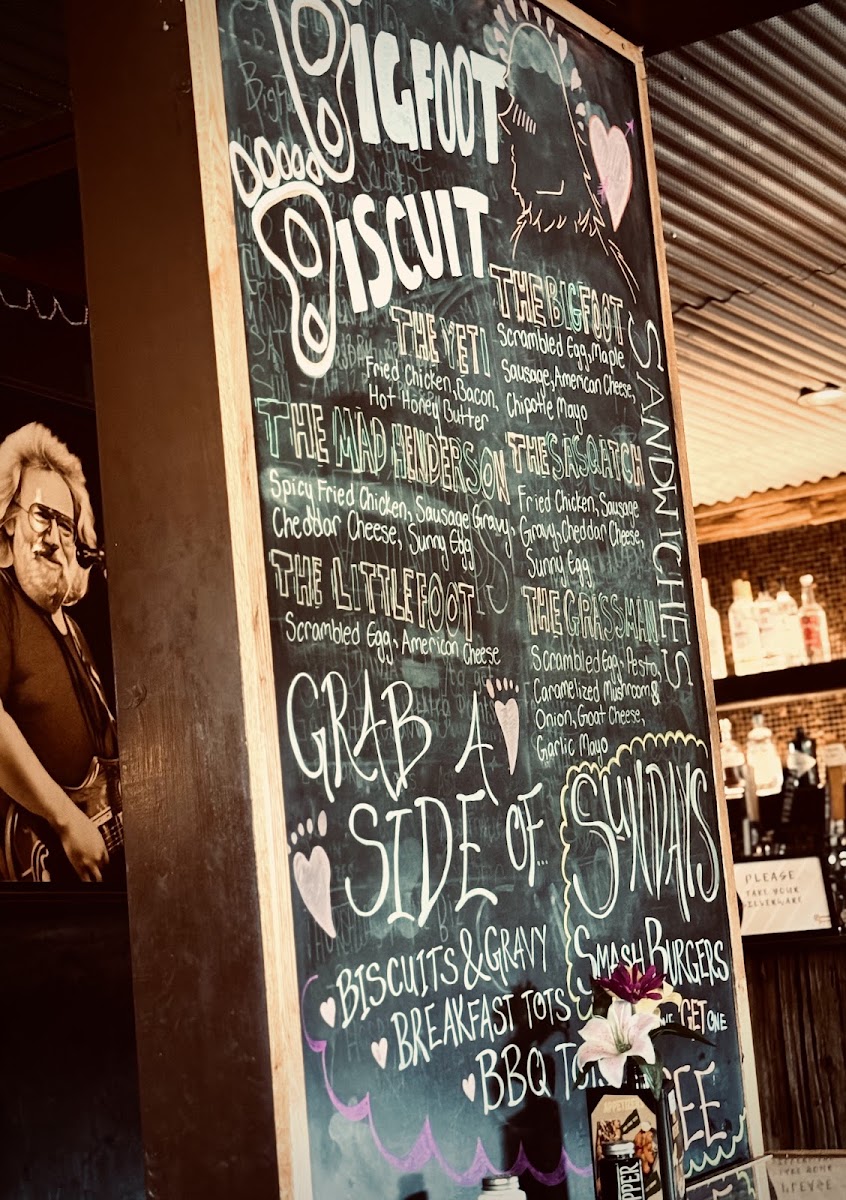 BIGFOOT
BISCUIT
SANDWICHES
THE YETI
Fried Chicken, Bacon,
Hot Honey Butter
THE BIGFOOT
Scrambled Egg, Maple
Sausage, American Cheese,
Chipotle Mayo
THE MAD HENDERSON
Spicy Fried Chicken, Sausage Gravy,
Cheddar Cheese, Sunny Egg
THE SASQATCH
Fried Chicken, Sausage
Gravy, Cheddar Cheese,
Sunny Egg
THE LITTLEFOOT
Scrambled Egg, American Cheese
THE GRASSMAN
Scrambled Egg, Pesto,
Caramelized Mushroom &
Onion, Goat Cheese,
Garlic Mayo
GRAB A
SIDE OF...
BISCUITS & GRAVY
BREAKFAST TOTS
BBQ
SUNDAYS
SMASH BURGERS
GET ONE
PLEASE
TAKE YOUR
SILVERWARE
APPETIZERS